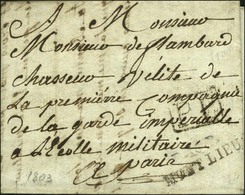 A Monsieur
Monsieur de flambard
chasseur velite de
La premiere Compagnie
de la garde imperialle
a L'Ecolle militaire
a paris
3 1803